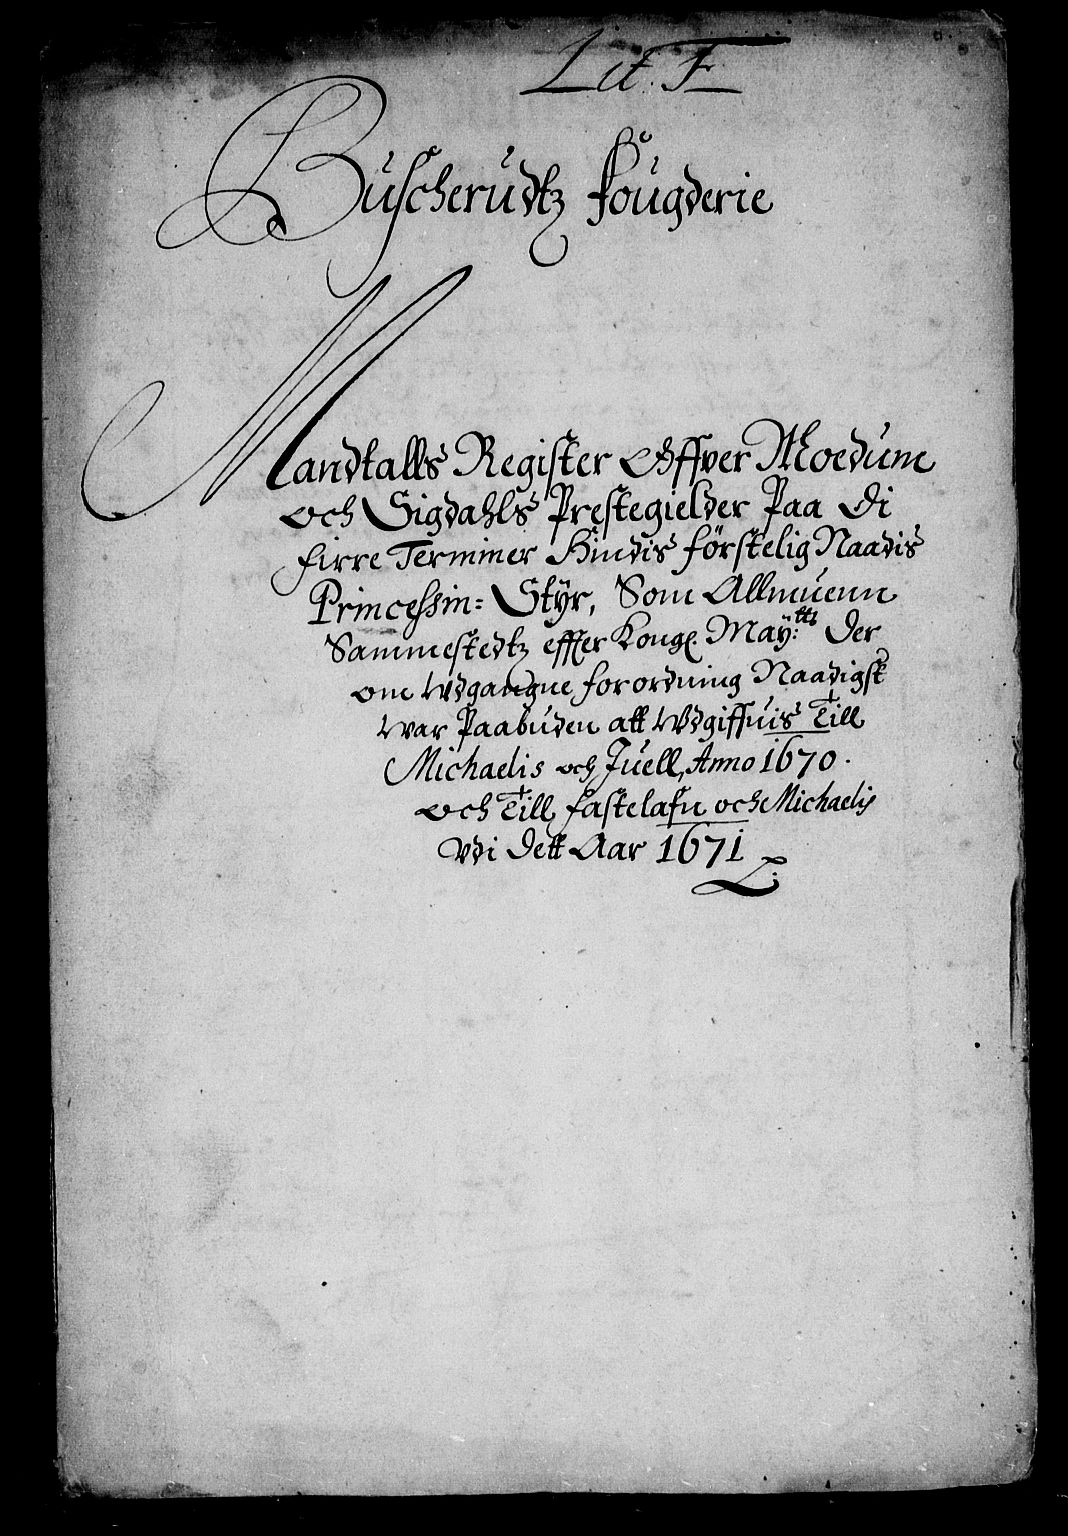 Lit. F
Buscherudtz fougderie
Mandtalls Register Offver Moedum
och Sigdahls Prestegielder Paa di
firre Terminer Hindis förstelig Naadis
Princessin= Styr, Som Allmuenn
Sammestedtz effter Kongl. May:tts der
om Udgangne forordning Naadigst
war Paabuden att Udgiffuis Till
Michaelis och Juell, Anno 1670.
och Till fastelafn och Michaelis
Udi dett Aar 1671